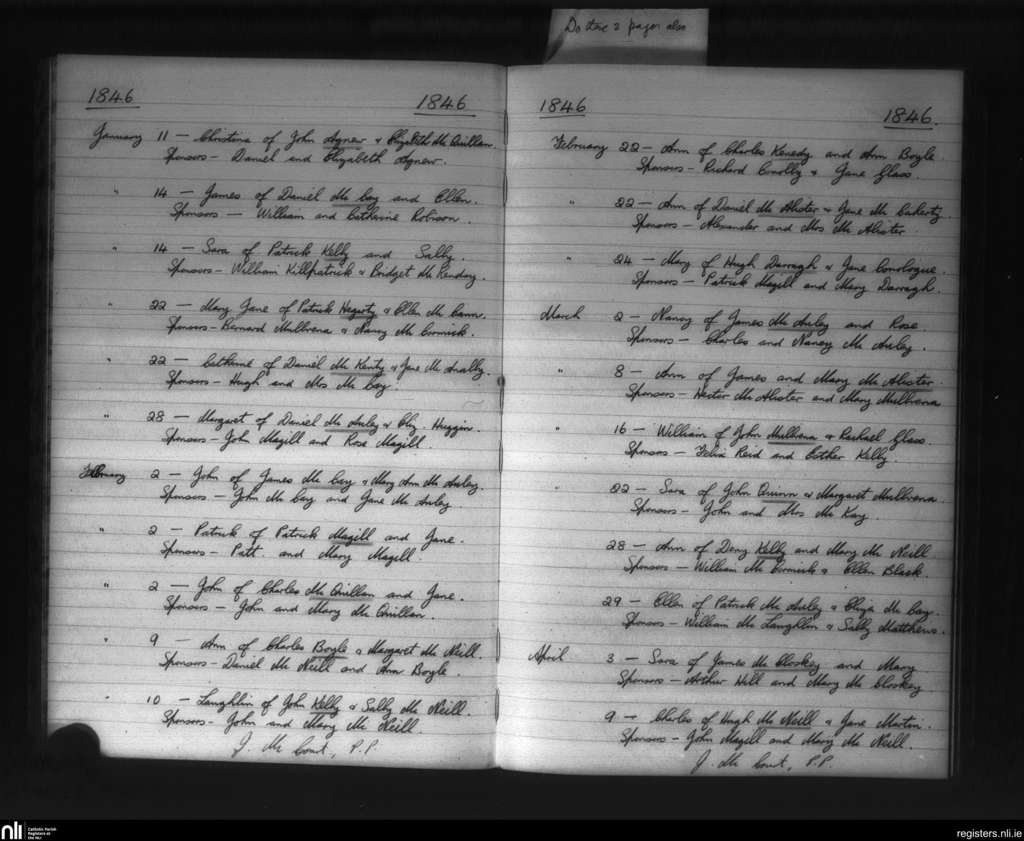 Do these 2 pages also
1846 1846
January 11 — Christina of John Agnew & Elizabeth Mc Quillan.
Sponsors — Daniel and Elizabeth Agnew.
" 14 — James of Daniel Mc Coy and Ellen.
Sponsors — William and Catherine Robinson.
" 14 — Sara of Patrick Kelly and Sally.
Sponsors — William Killpatrick & Bridget Mc Kendry.
" 22 — Mary Jane of Patrick Hegerty & Ellen Mc Cann.
Sponsors — Bernard Mulvena & Nancy Mc Cormick.
" 22 — Catherine of Daniel Mc Kenty & Jane Mc Anally.
Sponsors — Hugh and Mrs Mc Coy.
" 28 — Margaret of Daniel Mc Auley & Eliz. Huggin.
Sponsors — John Magill and Rose Magill.
February 2 — John of James Mc Coy & Mary Ann Mc Auley.
Sponsors — John Mc Coy and Jane Mc Auley
" 2 — Patrick of Patrick Magill and Jane.
Sponsors — Patt. and Mary Magill.
" 2 — John of Charles Mc Quillan and Jane.
Sponsors — John and Mary Mc Quillan.
" 9 — Ann of Charles Boyle & Margaret Mc Neill.
Sponsors — Daniel Mc Neill and Ann Boyle.
" 10 — Laughlin of John Kelly & Sally Mc Neill.
Sponsors — John and Mary Mc Neill.
J. Mc Court, P.P.
1846 1846.
February 22 — Ann of Charles Kenedy and Ann Boyle.
Sponsors — Richard Conolly & Jane Glass.
" 22 — Ann of Daniel Mc Alister & Jane Mc Caherty.
Sponsors — Alexander and Mrs Mc Alister.
" 24 — Mary of Hugh Darragh & Jane Conologue.
Sponsors — Patrick Magill and Mary Darragh.
March 2 — Nancy of James Mc Auley and Rose.
Sponsors — Charles and Nancy Mc Auley.
" 8 — Ann of James and Mary Mc Alister.
Sponsors — Hester Mc Alister and Mary Mulvena
" 16 — William of John Mulvena & Rachael Glass.
Sponsors — Felix Reid and Esther Kelly.
" 22 — Sara of John Quinn & Margaret Mulvena.
Sponsors — John and Mrs Mc Kay.
28 — Ann of Deny Kelly and Mary Mc Neill.
Sponsors — William Mc Cormick & Ellen Black.
29 — Ellen of Patrick Mc Auley & Eliza Mc Coy.
Sponsors — William Mc Laughlin & Sally Matthews.
April 3 — Sara of James Mc Closkey and Mary
Sponsors — Arthur Hill and Mary Mc Closkey
9 — Charles of Hugh Mc Neill & Jane Martin.
Sponsors — John Magill and Mary Mc Neill.
J. Mc Court, P.P.
nli Catholic Parish
Registers at
the NLI
registers.nli.ie